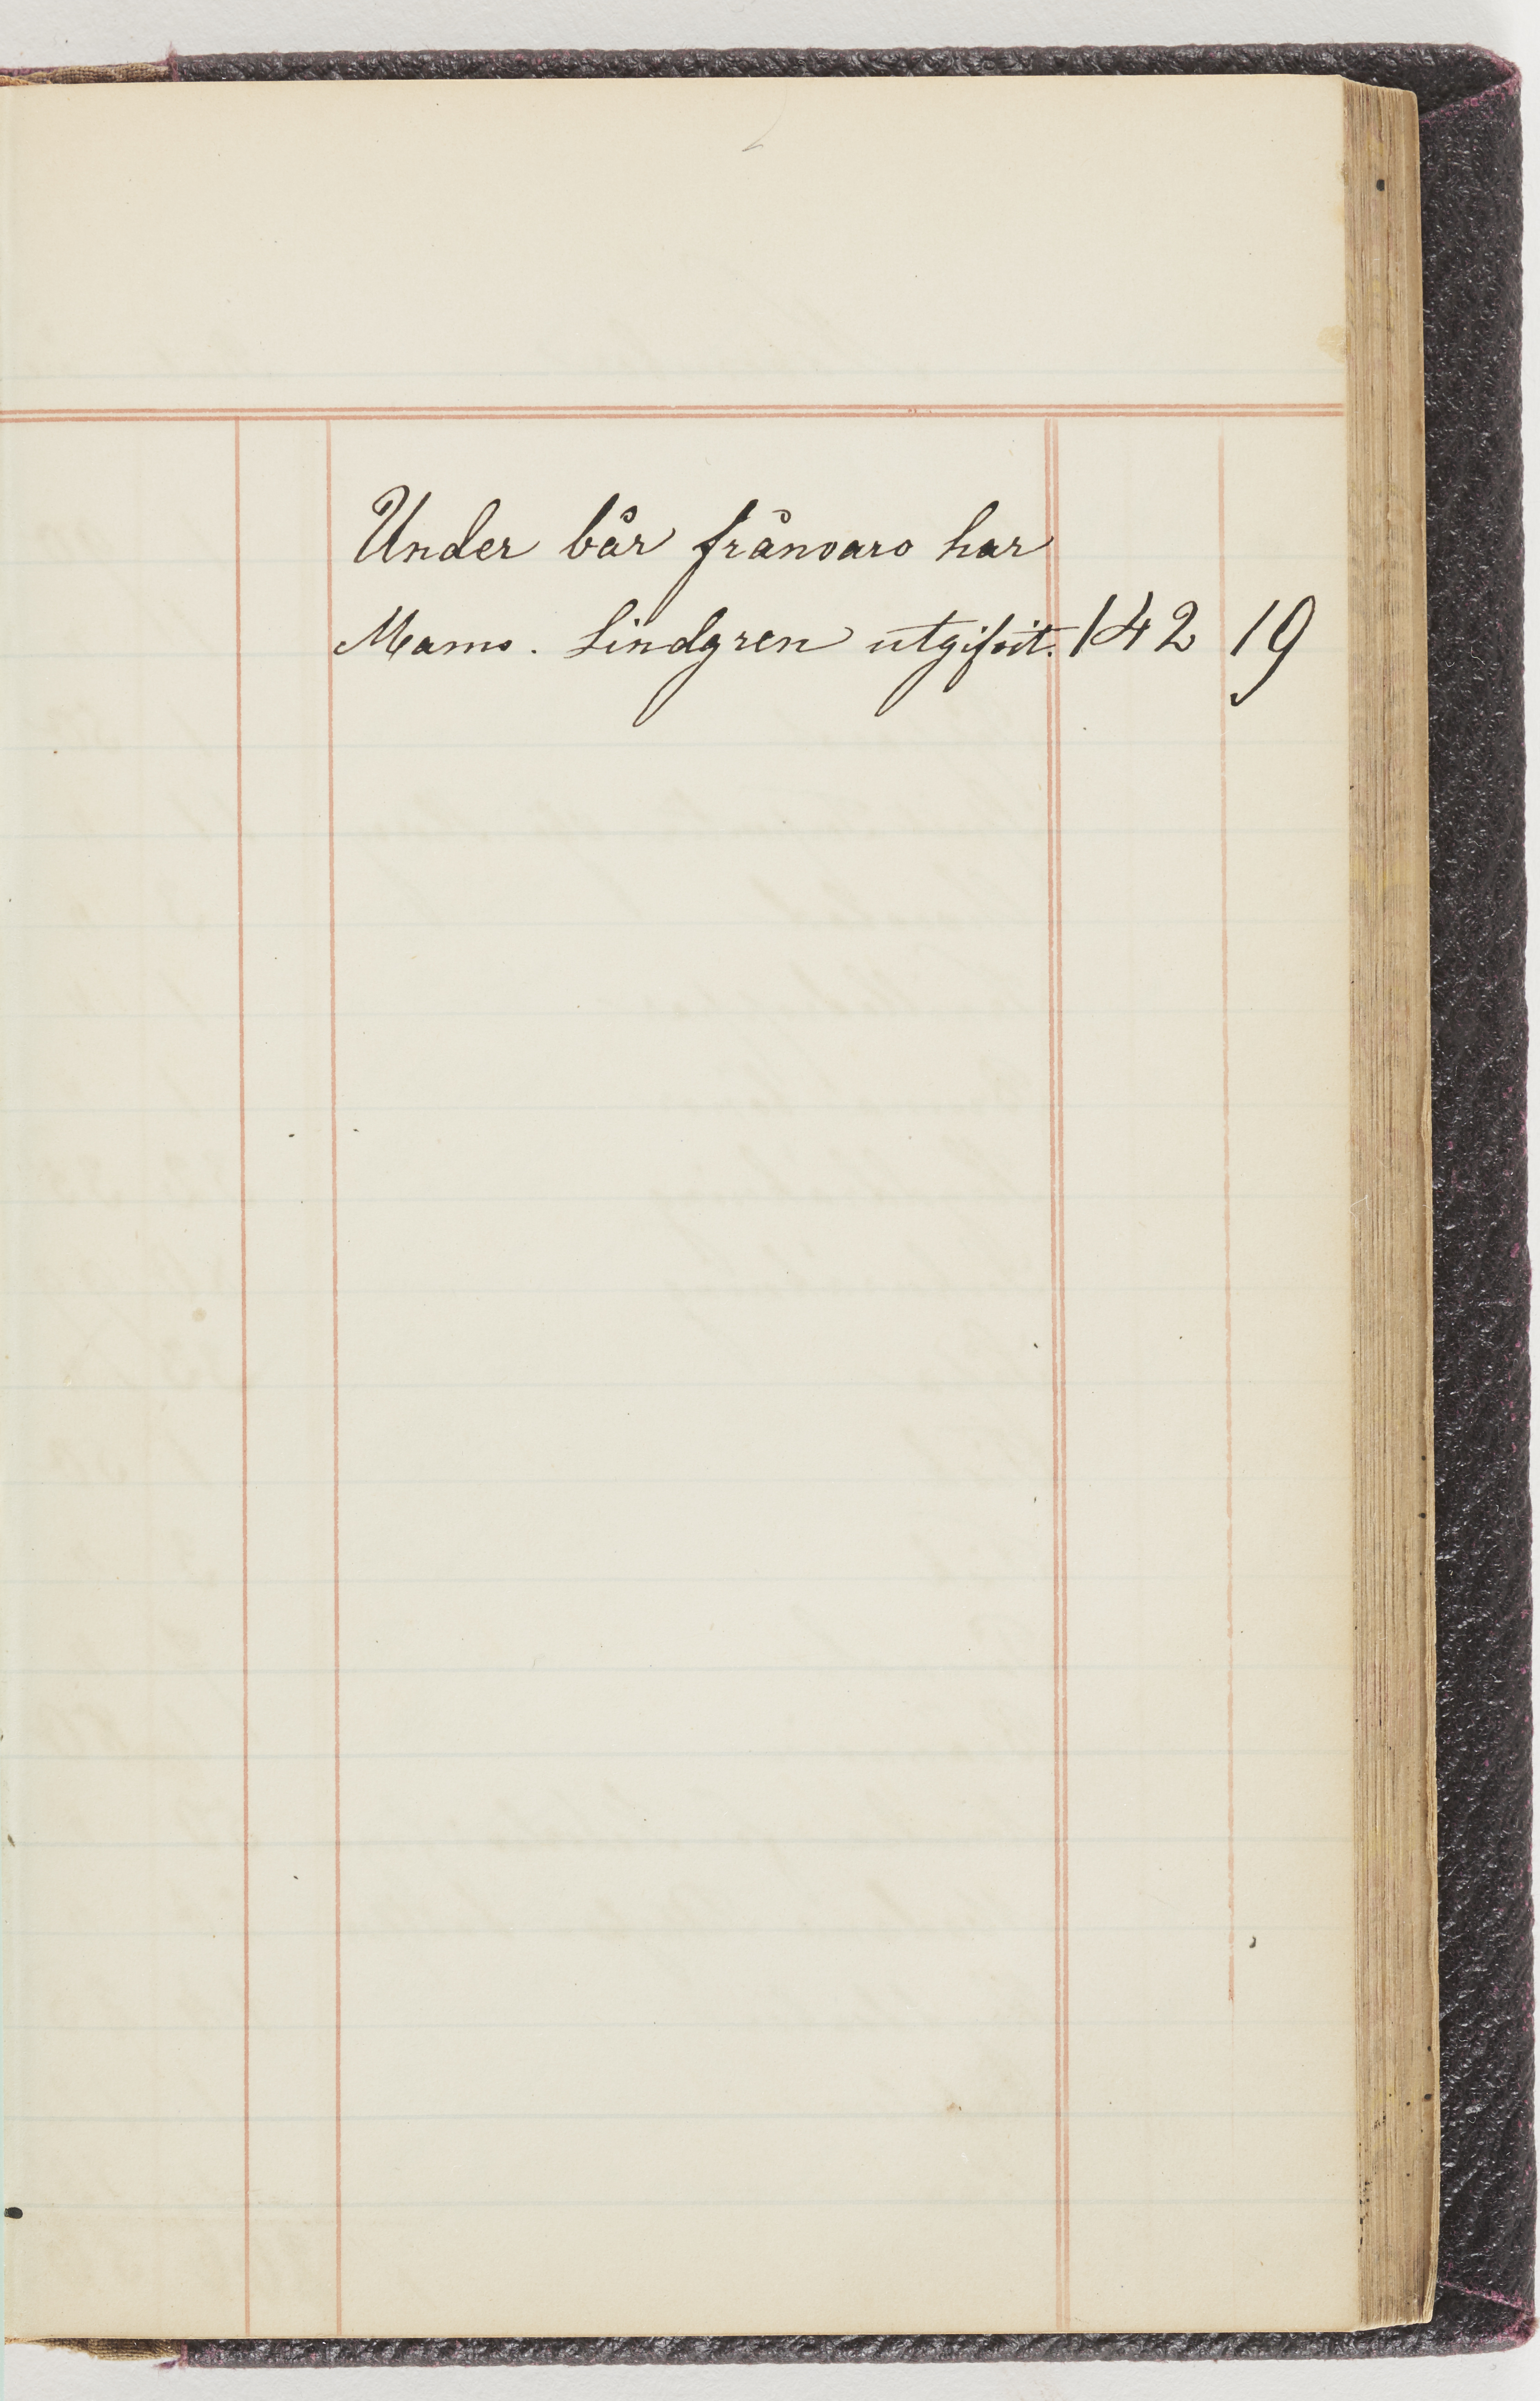 Under vår frånvaro har
Mams. Lindgren utgifvit. 142 19